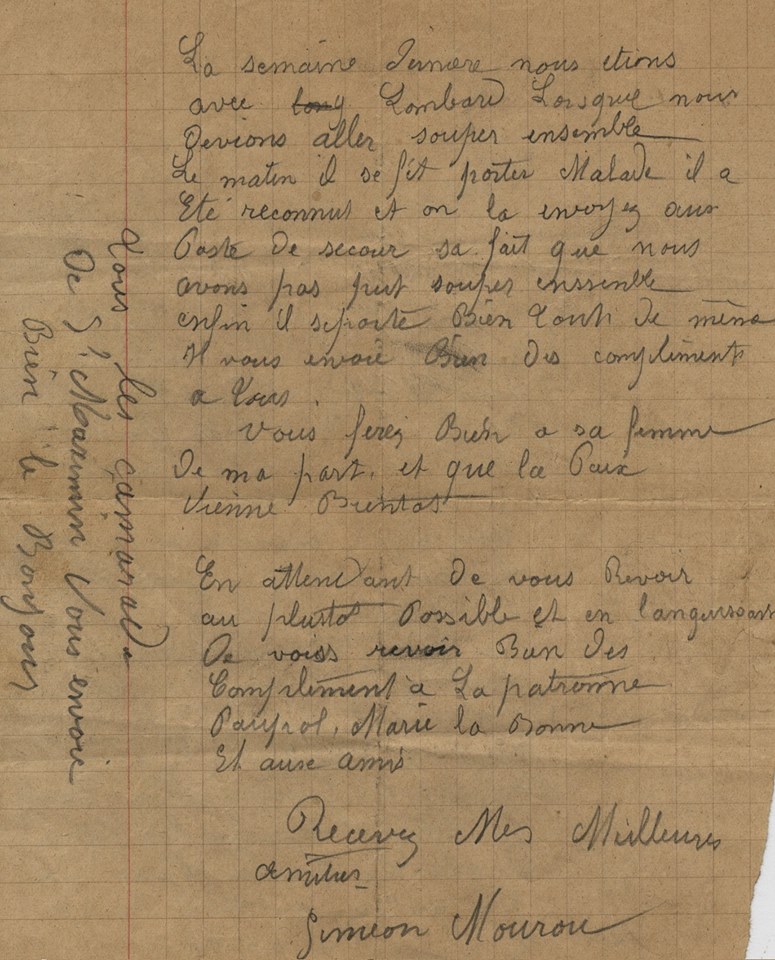 La semaine dernière nous etions
avec Lombard Lorsque nous
Devions aller souper ensemble
Le matin il se fit porter Malade il a
Eté reconnut et on la envoyez aux
Poste de secour sa fait que nous
avons pas put souper enssemble
enfin il seporte Bien tout de même
Il vous envoie Bien des compliments
a Tous.
Vous ferez Bien a sa femme
De ma part. et que la Paix
Vienne Bientot
En attendant de vous Revoir
au plustot Possible et en languissant
De voiss revoir Bien Des
Compliment a La patronne
Marie la Bonne
Et aux amis
Recevez Mes Meilleures
amities
Simeon Mourou
Tous les camarade
De St Maximin Vous envoie
Bien le Bonjour